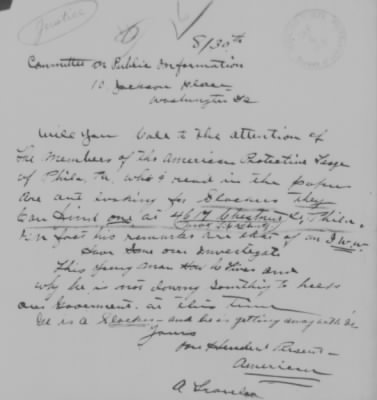 Justice
8/30th
Committee on Public Information
10 Jackson Place
Washington DC
Will you Call to the attention of
the Members of the American Protective Leage
of Phila. Pa. who I read in the papers
are out looking for Slackers they
Can find one at 4617 Chestnut St, Phila.
In fact his remarks are that of an I.W.W.
Have some one Investigate
This Young Man How he lives and
why he is not doing Somthing to help
our Goverment at this time
He is a Slacker - and he is getting away with it
Yours
One Hundred Percent -
American
A